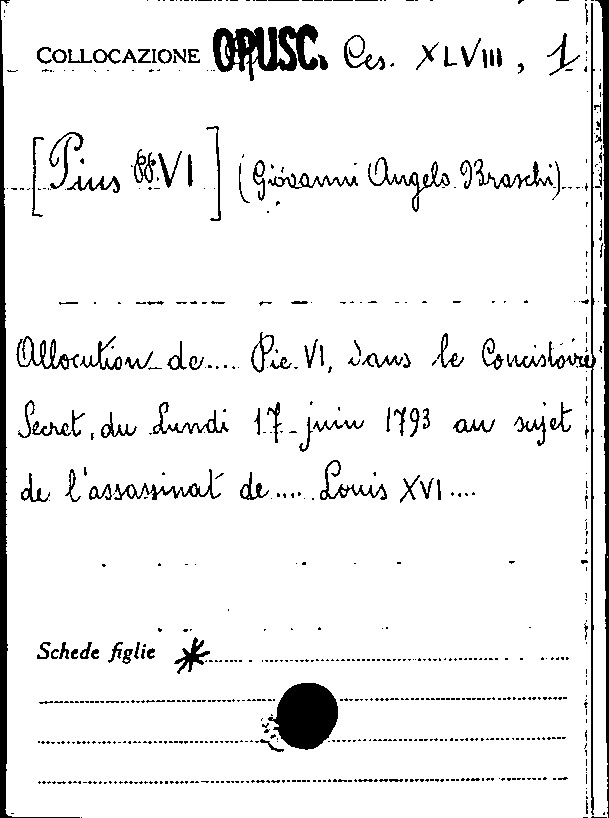 COLLOCAZIONE OPUSC. Ces. XLVIII, 1
[Pius PP. VI] (Giovanni Angelo Braschi)
Allocution de.... Pie VI, dans le Concistoire
Secret, du Lundi 17 juin 1793 au sujet
de l'assassinat de.... Louis XVI....
Schede figlie *